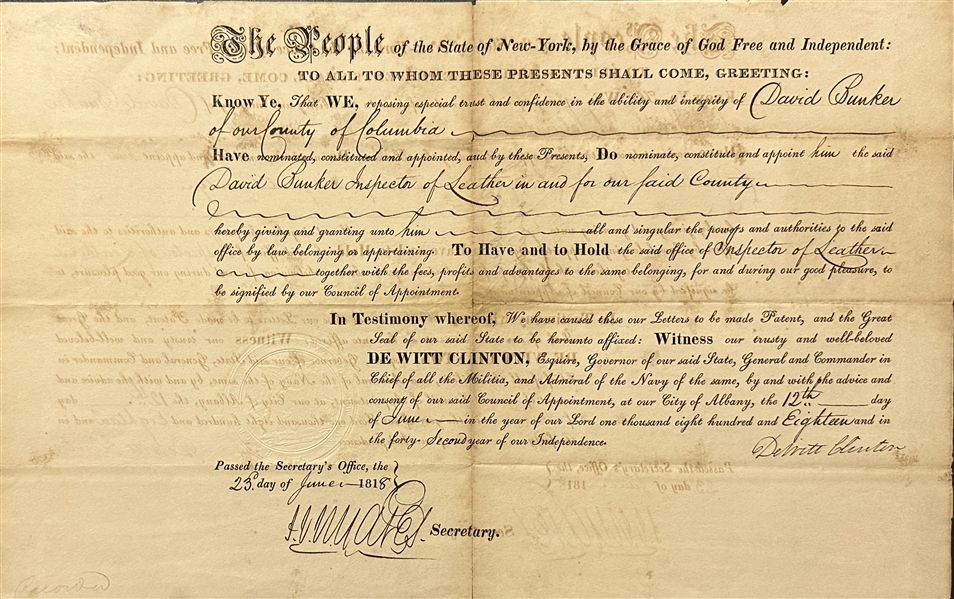 The People of the State of New-York, by the Grace of God Free and Independent:
TO ALL TO WHOM THESE PRESENTS SHALL COME, GREETING:
Know Ye, That WE, reposing especial trust and confidence in the ability and integrity of David Bunker
of our County of Columbia
Have nominated, constituted and appointed, and by these Presents, Do nominate, constitute and appoint him the said
David Bunker Inspector of Leather in and for our said County
hereby giving and granting unto him all and singular the powers and authorities to the said
office by law belonging or appertaining. To Have and to Hold the said office of Inspector of Leather
together with the fees, profits and advantages to the same belonging, for and during our good pleasure, to
be signified by our Council of Appointment.
In Testimony whereof, We have caused these our Letters to be made Patent, and the Great
Seal of our said State to be hereunto affixed: Witness our trusty and well-beloved
DE WITT CLINTON, Esquire, Governor of our said State, General and Commander in
Chief of all the Militia, and Admiral of the Navy of the same, by and with the advice and
consent of our said Council of Appointment, at our City of Albany, the 12th day
of June in the year of our Lord one thousand eight hundred and Eighteen and in
the forty-Second year of our Independence.
DeWitt Clinton
Passed the Secretary's Office, the
23d day of June 1818
Secretary.
Recorded